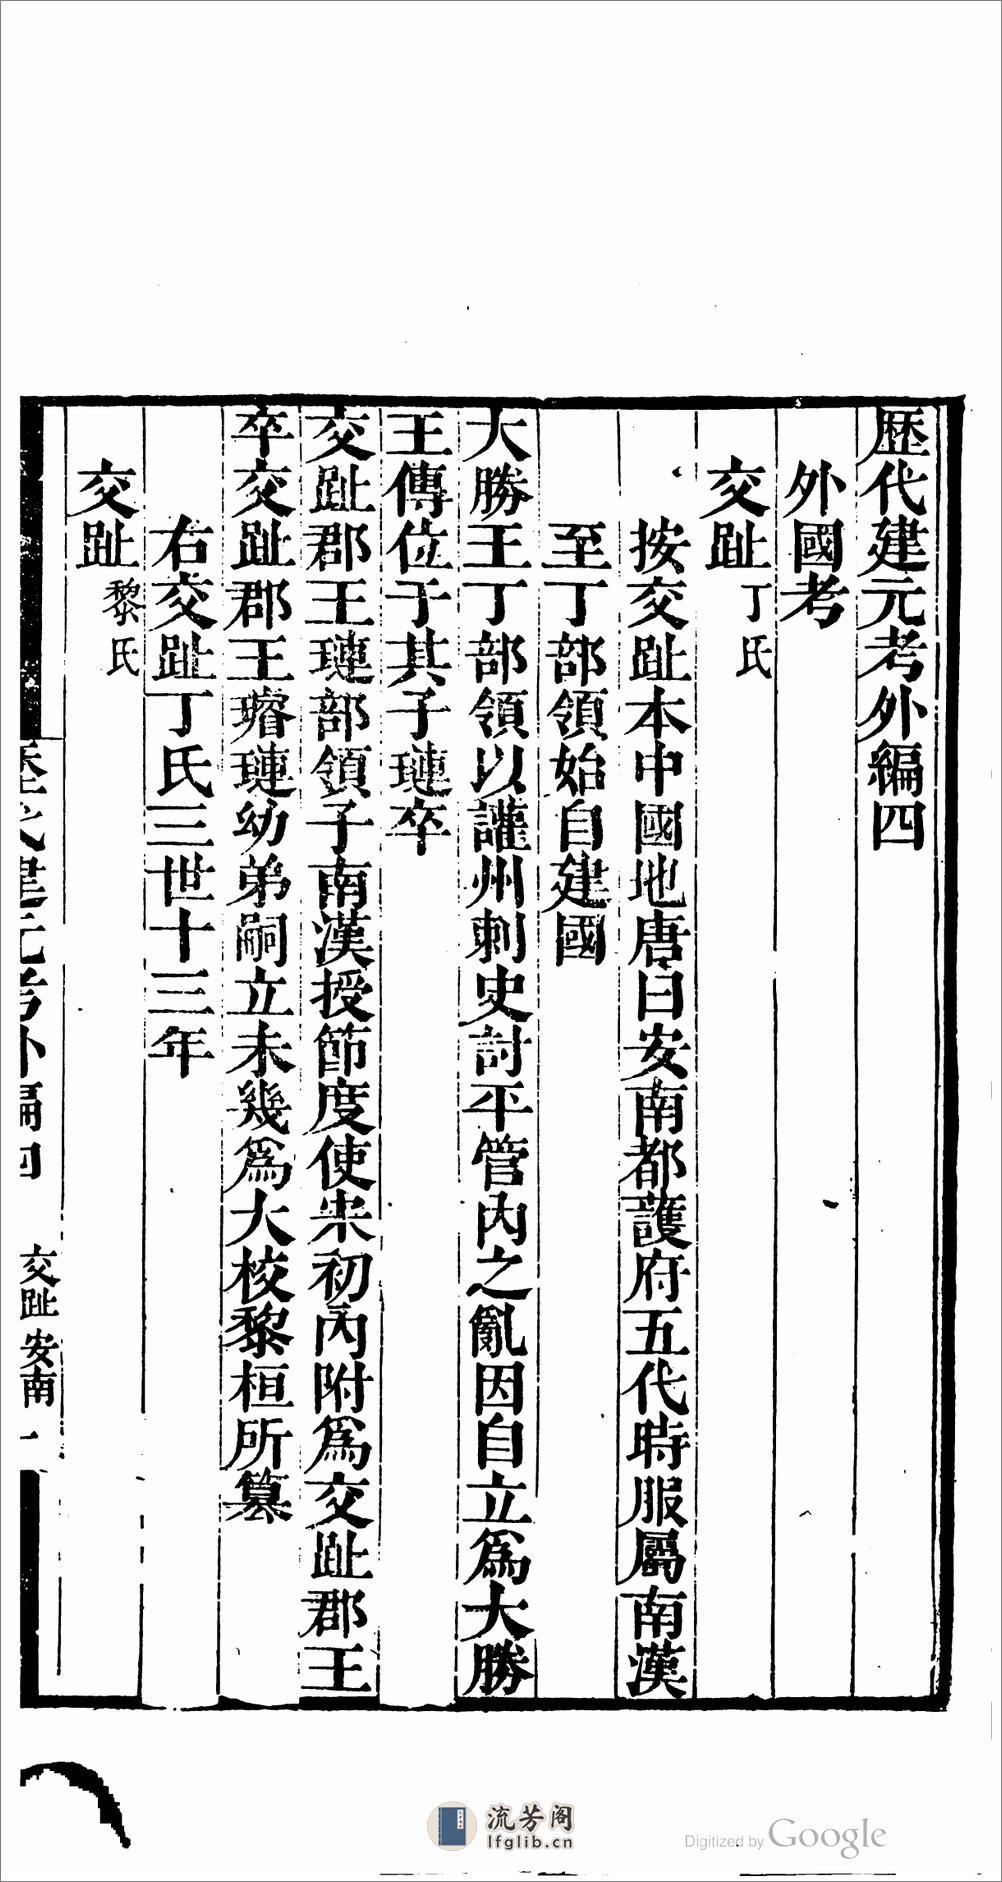 歷代建元考外編四
外國考
交趾丁氏
按交趾本中國地唐曰安南都護府五代時服屬南漢
至丁部領始自建國
大勝王丁部領以讙州刺史討平管內之亂因自立爲大勝
王傳位于其子璉卒
交趾郡王璉部領子南漢授節度使宋初內附爲交趾郡王
卒交趾郡王璿璉幼弟嗣立未幾爲大校黎桓所篡
右交趾丁氏三世十三年
交趾黎氏
歷代建元考外編四 交趾 安南 一
流芳阁
lfglib.cn
Digitized by Google